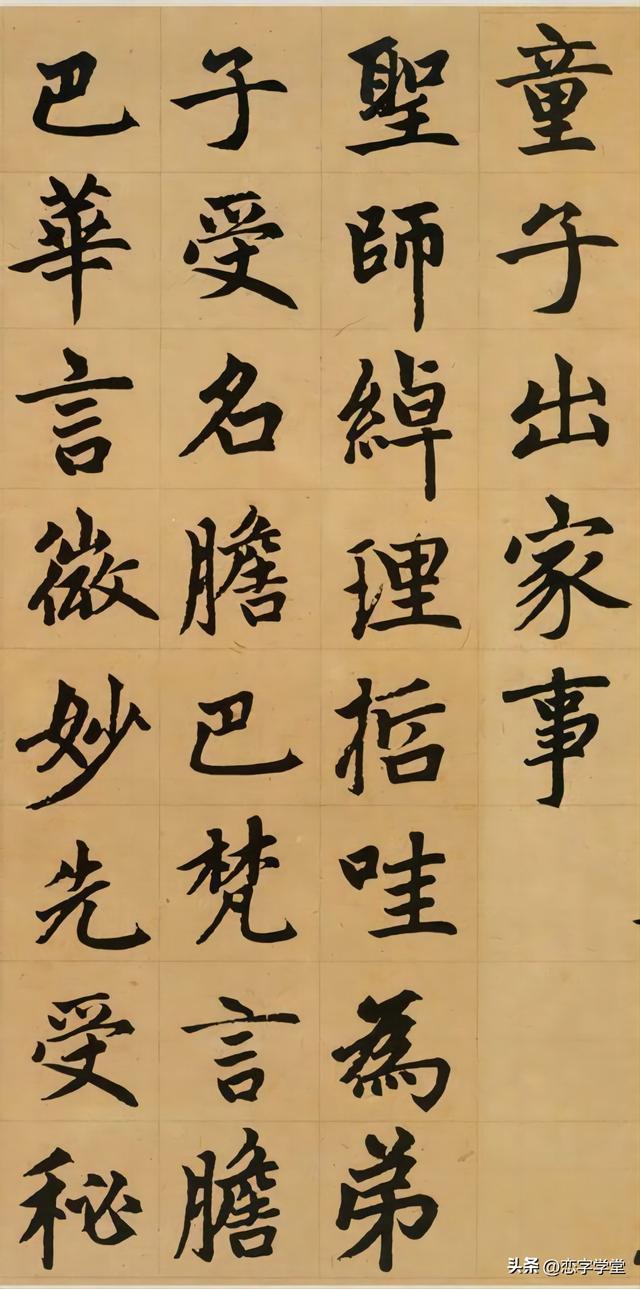 童子出家事
聖師綽理哲哇為弟
子受名膽巴梵言膽
巴華言微妙先受秘
头条 @恋字学堂